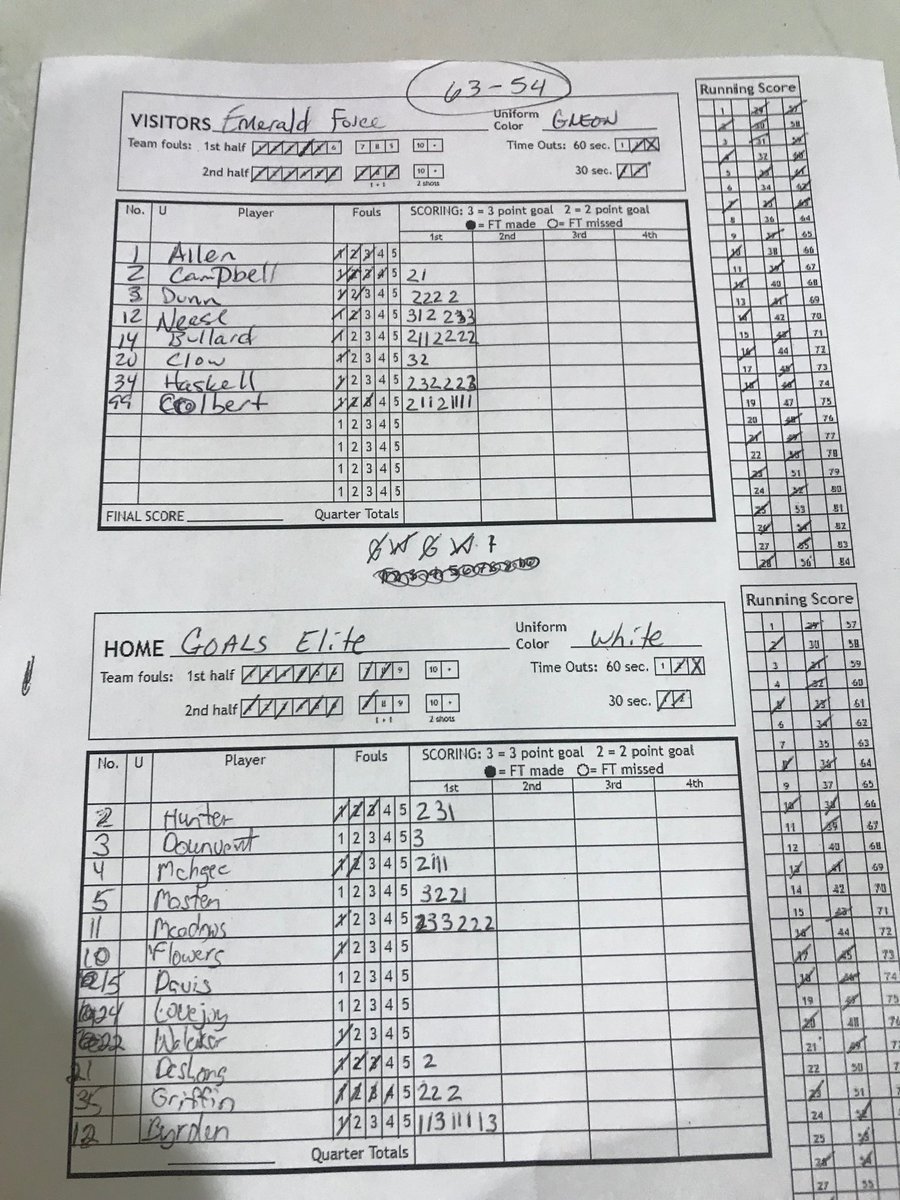 63-54
VISITORS Emerald Force Uniform Color GREON
Team fouls: 1st half 6 7 8 9 10 + Time Outs: 60 sec. 1
2nd half 10 + 30 sec.
1 + 1 2 shots
No. U Player Fouls SCORING: 3 = 3 point goal 2 = 2 point goal
= FT made = FT missed
1st 2nd 3rd 4th
1 Allen 1 2 3 4 5
2 Campbell 1 2 3 4 5 21
3 Dunn 1 2 3 4 5 2222
12 Neese 1 2 3 4 5 312 233
14 Bullard 1 2 3 4 5 2112222
20 Clow 1 2 3 4 5 32
34 Haskell 1 2 3 4 5 232223
99 Colbert 1 2 3 4 5 21121111
1 2 3 4 5
1 2 3 4 5
1 2 3 4 5
1 2 3 4 5
FINAL SCORE Quarter Totals
G W G W
HOME GOALS Elite Uniform Color White
Team fouls: 1st half 9 10 + Time Outs: 60 sec. 1
2nd half 8 9 10 + 30 sec.
1 + 1 2 shots
No. U Player Fouls SCORING: 3 = 3 point goal 2 = 2 point goal
= FT made = FT missed
1st 2nd 3rd 4th
2 Hunter 1 2 3 4 5 231
3 1 2 3 4 5 3
4 Mchgee 1 2 3 4 5 2111
5 Mosten 1 2 3 4 5 3221
11 Meadows 1 2 3 4 5 233222
10 Flowers 1 2 3 4 5
15 Davis 1 2 3 4 5
24 Lovejoy 1 2 3 4 5
22 Walker 1 2 3 4 5
21 1 2 3 4 5 2
35 Griffin 1 2 3 4 5 222
12 Byrden 1 2 3 4 5 11311113
Quarter Totals
Running Score
1 29 57
2 30 58
3 31 59
4 32 60
5 33 61
6 34 62
7 35 63
8 36 64
9 37 65
10 38 66
11 39 67
12 40 68
13 41 69
14 42 70
15 43 71
16 44 72
17 45 73
18 46 74
19 47 75
20 48 76
21 49 77
22 50 78
23 51 79
24 52 80
25 53 81
26 54 82
27 55 83
28 56 84
Running Score
1 29 57
2 30 58
3 31 59
4 32 60
5 33 61
6 34 62
7 35 63
8 36 64
9 37 65
10 38 66
11 39 67
12 40 68
13 41 69
14 42 70
15 43 71
16 44 72
17 45 73
18 46 74
19 47 75
20 48 76
21 49
22 50
23 51
24 52
25 53
26 54
27 55